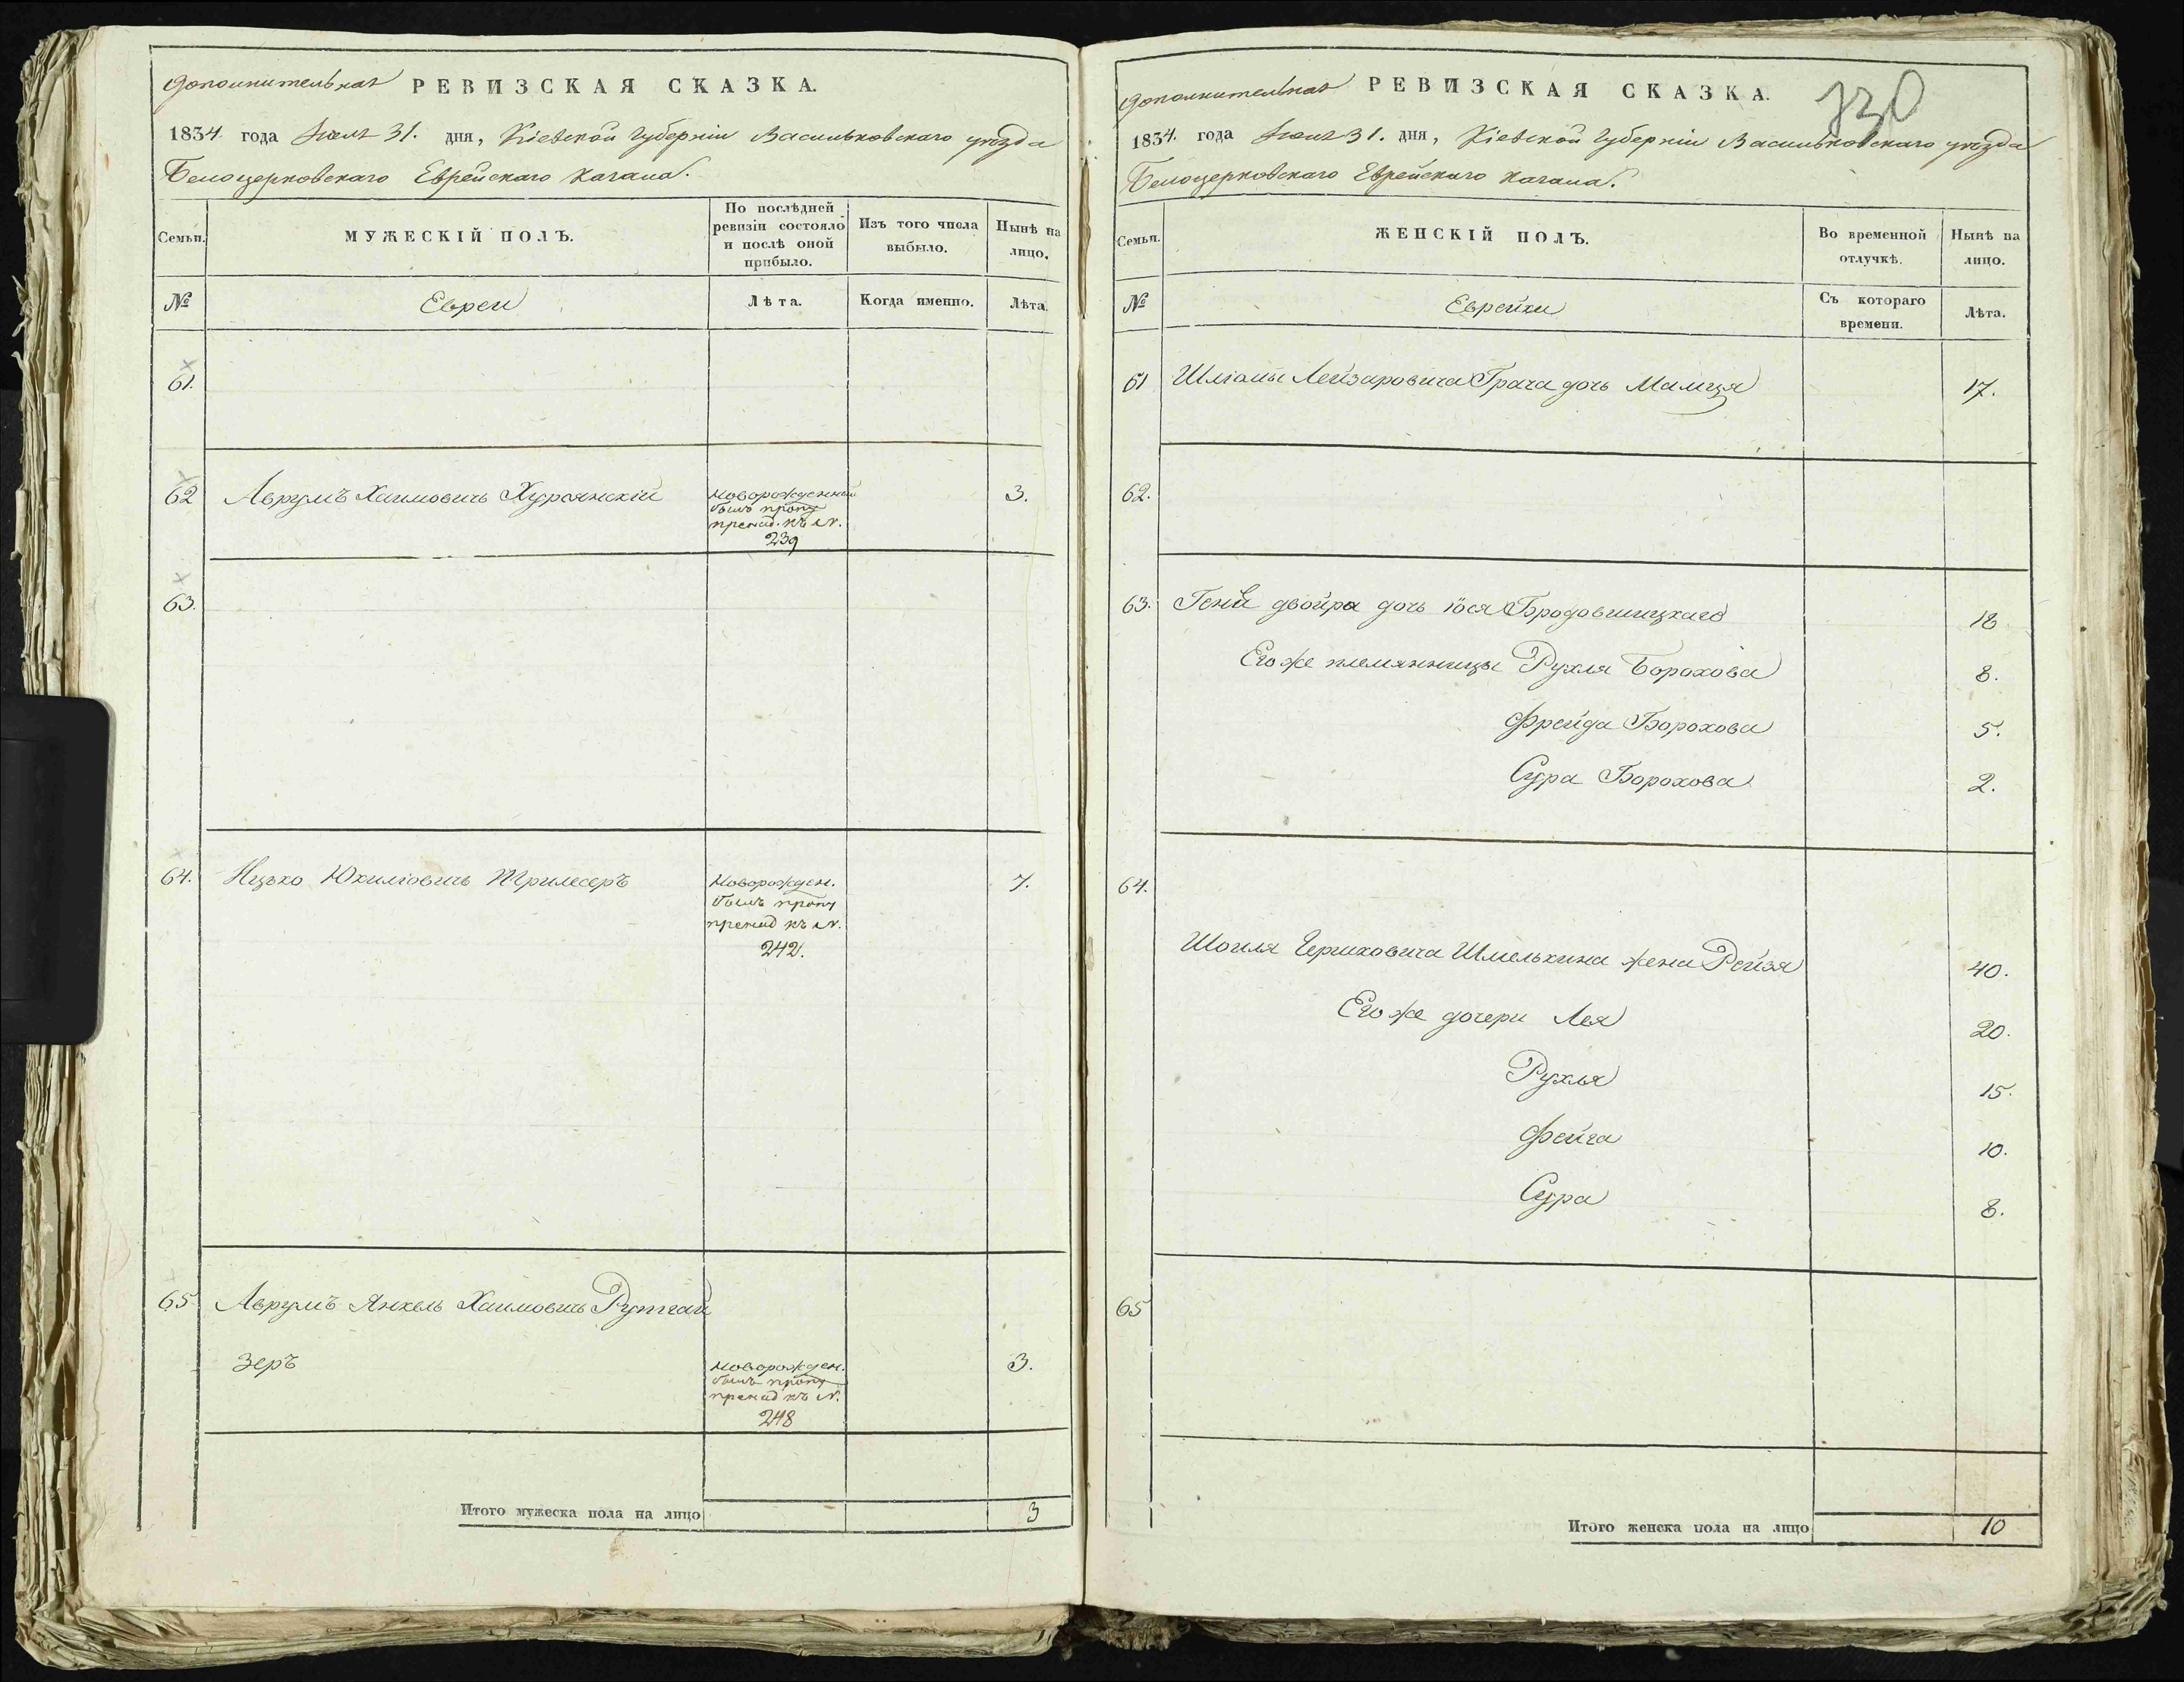 дополнительная РЕВИЗСКАЯ СКАЗКА.
1834 года Іюля 31. дня, Кіевской Губерніи Васильковского уезда
Белоцерковскаго Еврейскаго кагала.
Семьи.
МУЖЕСКІЙ ПОЛЪ.
По послѣдней
ревизіи состояло
и послѣ оной
прибыло.
Изъ того числа
выбыло.
Нынѣ на
лицо.
№
Евреи
Лѣта.
Когда именно.
Лѣта.
61.
62 Аврумъ Хаимовичъ Хурсянскій Новорожденный 3.
былъ пропу
къ N.
239
63.
64. Ицько Юхилиовичъ Новорожден. 7.
былъ пропу
къ N.
242.
65 Аврумъ Янкель Хаимовичъ Рутгай
зеръ Новорожден. 3.
былъ пропу
къ N.
248
Итого мужеска пола на лицо 3
дополнительная РЕВИЗСКАЯ СКАЗКА.
730
1834. года Іюля 31. дня, Кіевской Губерніи Васильковскаго уезда
Белоцерковскаго Еврейскаго кагала.
Семьи.
ЖЕНСКІЙ ПОЛЪ.
Во временной
отлучкѣ.
Нынѣ на
лицо.
№
Еврейки
Съ котораго
времени.
Лѣта.
61 Шліомы Лейзаровича Грача дочь Малця 17.
62.
63. Геня двойра дочь Іося Бродовшицкаго 18
Его же племянницы Рухля Борохова 8.
Фрейда Борохова 5.
Сура Борохова 2.
64.
Шоиля Гершковича Шмелькина жена Рейзя 40.
Его же дочери Лея 20.
Рухля 15.
Фейга 10.
Сура 8.
65
Итого женска пола на лицо 10